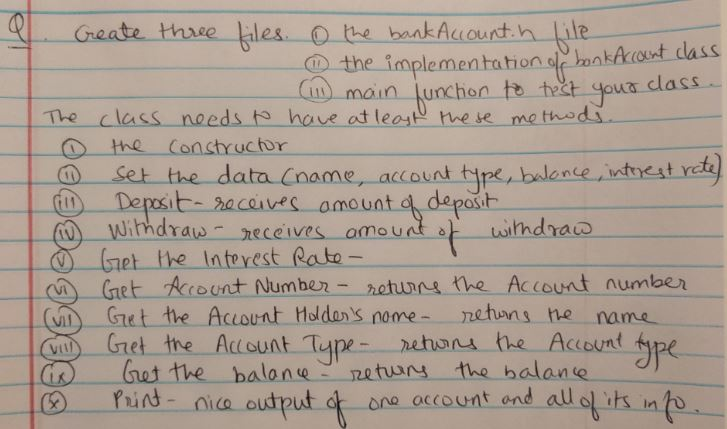 Q. Create three files. (i) the bankAccount.h file
(ii) the implementation of bankAccount class
(iii) main function to test your class.
The class needs to have atleast these methods.
(i) the constructor
(ii) Set the data (name, account type, balance, interest rate)
(iii) Deposit - receives amount of deposit
(iv) Withdraw - receives amount of withdraw
(v) Get the Interest Rate -
(vi) Get Account Number - returns the Account number
(vii) Get the Account Holder's name - returns the name
(viii) Get the Account Type - returns the Account type
(ix) Get the balance - returns the balance
(x) Print - nice output of one account and all of its info.